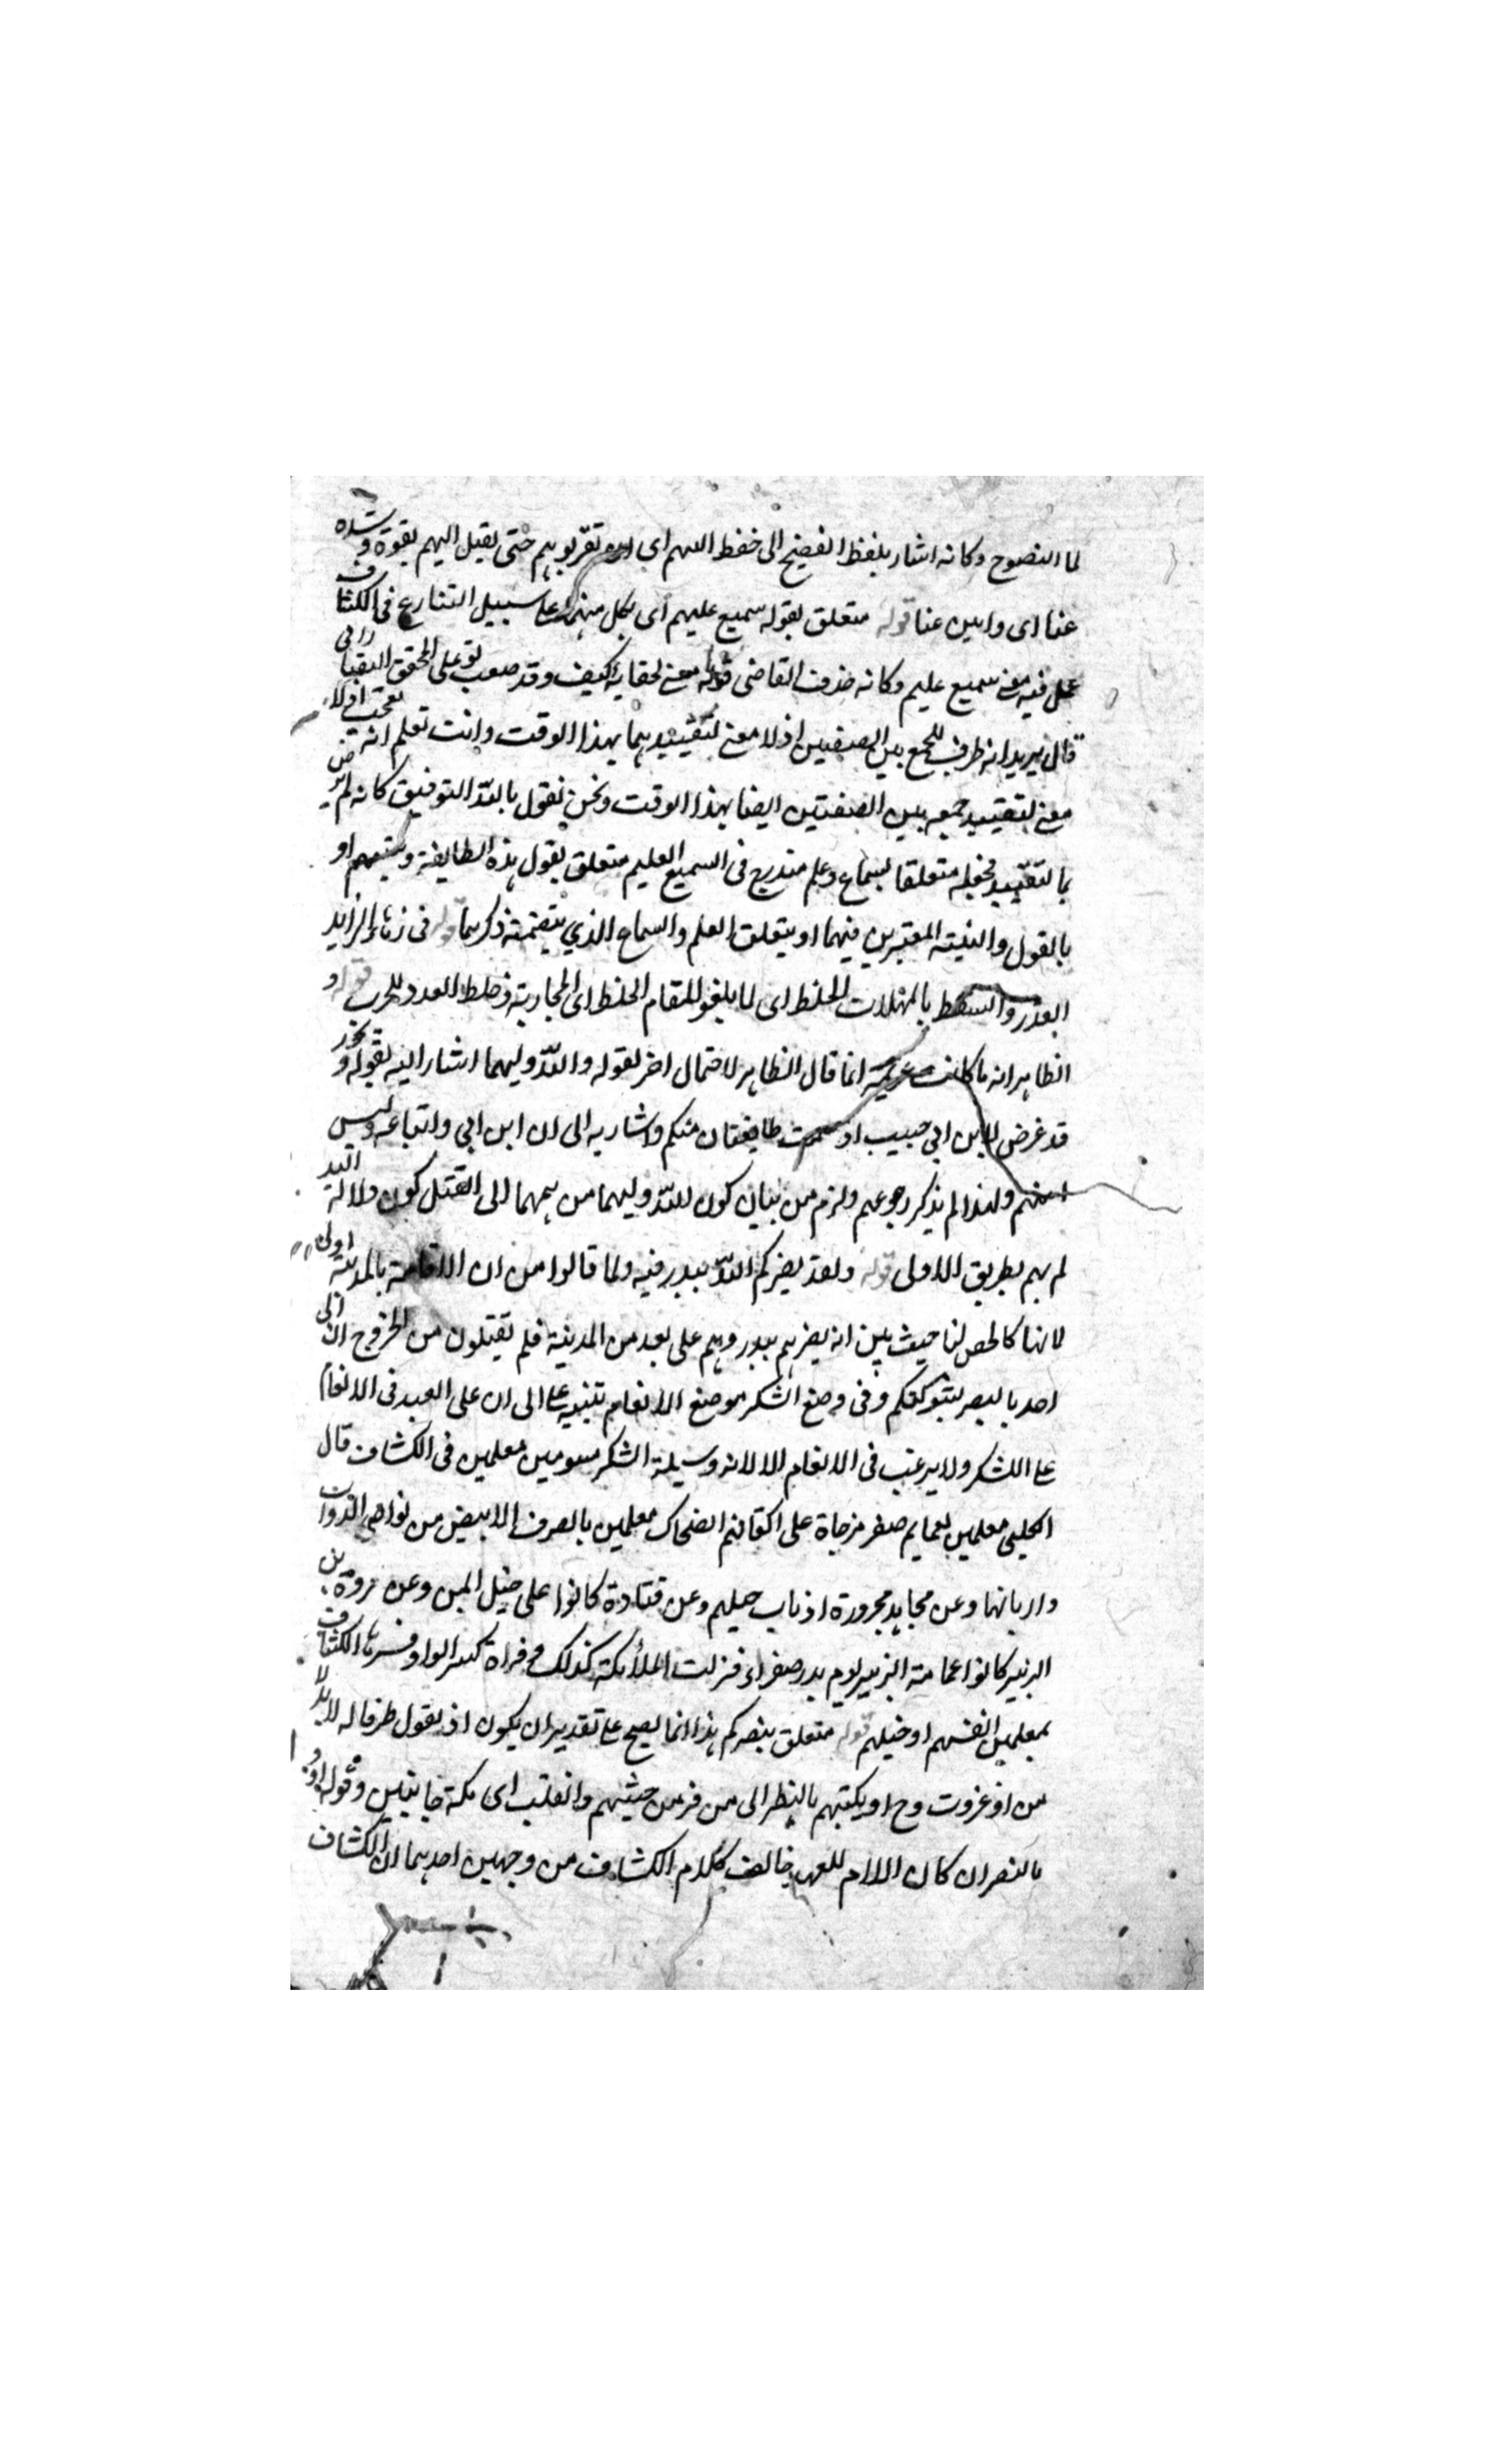 لما النضوح وكانه اشار بلفظ النضح الى حفظ السهم اى تقربوهم حتى يقبل اليهم بقوة وشده
عنا اى وامين عنا قوله متعلق بقوله سميع عليم اى بكل منهما على سبيل التنازع فى الكشاف
عمل فيه معنى سميع عليم وكانه حذف القاضى قوله معنى لخفائه كيف وقد صعب على المحقق التفتازانى
قال يريد انه ظرف للجمع بين الصفتين اذ لا معنى لتقييدهما بهذا الوقت وانت تعلم انه اذ لا
معنى لتقييد جمعه بين الصفتين ايضا بهذا الوقت ونحن نقول بالله التوفيق كانه لم يرض
بالتقييد فجعله متعلقا بسماع وعلم مندرج فى السميع العليم متعلق بقول هذه الطايفة ونيتهم او
بالقول والنية المعتبرين فيهما او يتعلق العلم والسماع الذي يتضمنه ذكرهما قوله فى زهاء الزايد
القدر والشوط بالمهملات الخلط اى لما بلغوا للمقام الخلط اى المحاربة وخلط العدد للحرب قوله و
الظاهر انه ما كانت عزيمة انما قال الظاهر لاحتمال اخر لقوله والله وليهما اشار اليه بقوله ويجوز
قد عرض لابن ابي حبيب اذ همت طايفتان منكم واشار به الى ان ابن ابي واتباعه وليس
منهم ولهذا لم يذكر رجوعهم ولزم من بيان كون الله وليهما من همهما الى الفشل كون ولاية الله
لهم بطريق الاولى قوله ولقد نصركم الله ببدر فيه ولما قالوا من ان الاقامة بالمدينة اولى
لانها كالحصن لنا حيث بين انه نصرهم ببدر وهم على بعد من المدينة فلم يفشلون من الخروج الى
احد بالنصر بتوكلكم وفى وضع الشكر موضع الانعام تنبيه على الى ان على العبد فى الانعام
على الشكر ولا يرغب فى الانعام الا لانه وسيلة الشكر مسومين معلمين فى الكشاف قال
الكلبى معلمين بعمايم صفر مرخاة على اكتافهم الضحاك معلمين بالصوف الابيض من نواصى الدواب
واذنابها وعن مجاهد مجزوزة اذناب خيلهم وعن قتادة كانوا على خيل البلق وعن عروة بن
الزبير كانوا عمامة الزبير يوم بدر صفراء فنزلت الملائكة كذلك وفى قراة كسر الواو فسرها الكشاف
بمعلمين انفسهم او خيلهم قوله متعلق بنصركم هذا انما يصح على تقدير ان يكون اذ تقول ظرفا له لا بدلا
من اذ غدوت وح او يكبتهم بالنظر الى من فر من جيشهم وانقلب اى مكة خائبين وقوله
بالنصر ان كان اللام للعهد يخالف كلام الكشاف من وجهين احدهما ان الكشاف